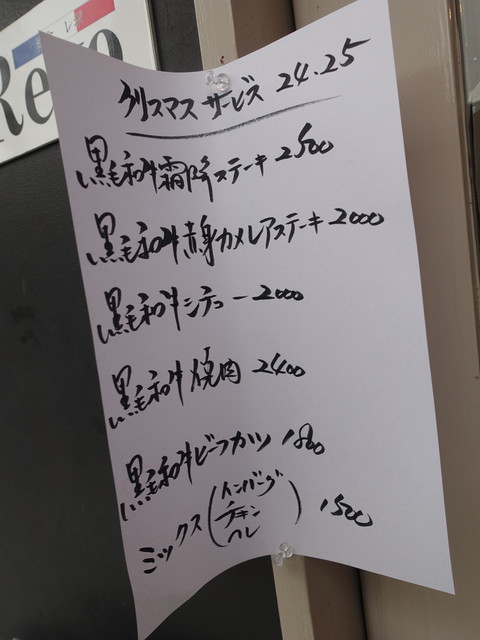 Re
クリスマスサービス 24.25
黒毛和牛霜降ステーキ 2500
黒毛和牛赤身カメレアステーキ 2000
黒毛和牛シチュー 2000
黒毛和牛焼肉 2400
黒毛和牛ビーフカツ 1800
ミックス(ハンバーグ
チキン
ヘレ) 1500